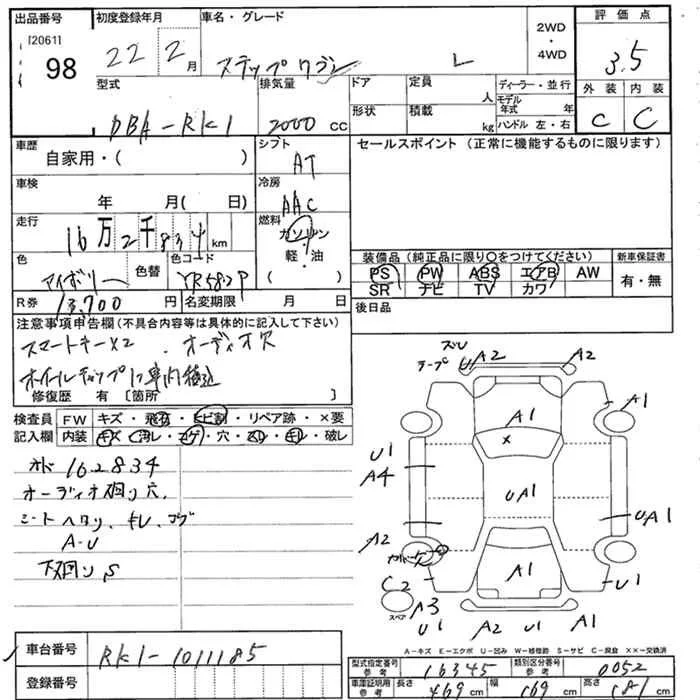 出品番号 初度登録年月 車名・グレード 2WD・4WD 評価点
[2061]
98 22 2月 ステップワゴン L 3.5
型式 排気量 ドア 定員 人 ディーラー・並行 外装 内装
DBA-RK1 2000 CC 形状 積載 kg モデル年式 年 C C
ハンドル 左・右
車歴 自家用・( ) シフト AT セールスポイント (正常に機能するものに限ります)
車検 年 月( 日) 冷房 AAC
走行 16万2千834 km 燃料 ガソリン 軽・油 ( )
色 アイボリー 色替 色コード YR582P
装備品 (純正品に限り○をつけてください) 新車保証書
PS PW ABS エアB AW 有・無
SR ナビ TV カワ
R券 13,700 円 名変期限 月 日 後日品
注意事項申告欄(不具合内容等は具体的に記入して下さい)
スマートキーX2 オーディオ穴
ホイールキャップ 車内積込
修復歴 有 [箇所 ]
検査員記入欄 FW キズ・飛石・ヒビ割・リペア跡・×要
内装 キズ・汚レ・コゲ・穴・スレ・キレ・破レ
162834
オーディオ廻り穴
シート ヘタリ、キレ、コゲ
A-U
下廻り S
テープ A2 A2
A1 A1
U1
A4 UA1 UA1
A2
C2 A1 U1
スペア A3
U1 A2 U1 A1
A-キズ E-エクボ U-凹み W-補修跡 S-サビ C-腐食 ××-交換済
車台番号 RK1-1011185
登録番号
型式指定番号 参考 16345 類別区分番号 参考 0052
車庫証明用 参考 長さ 469 cm 幅 169 cm 高さ cm